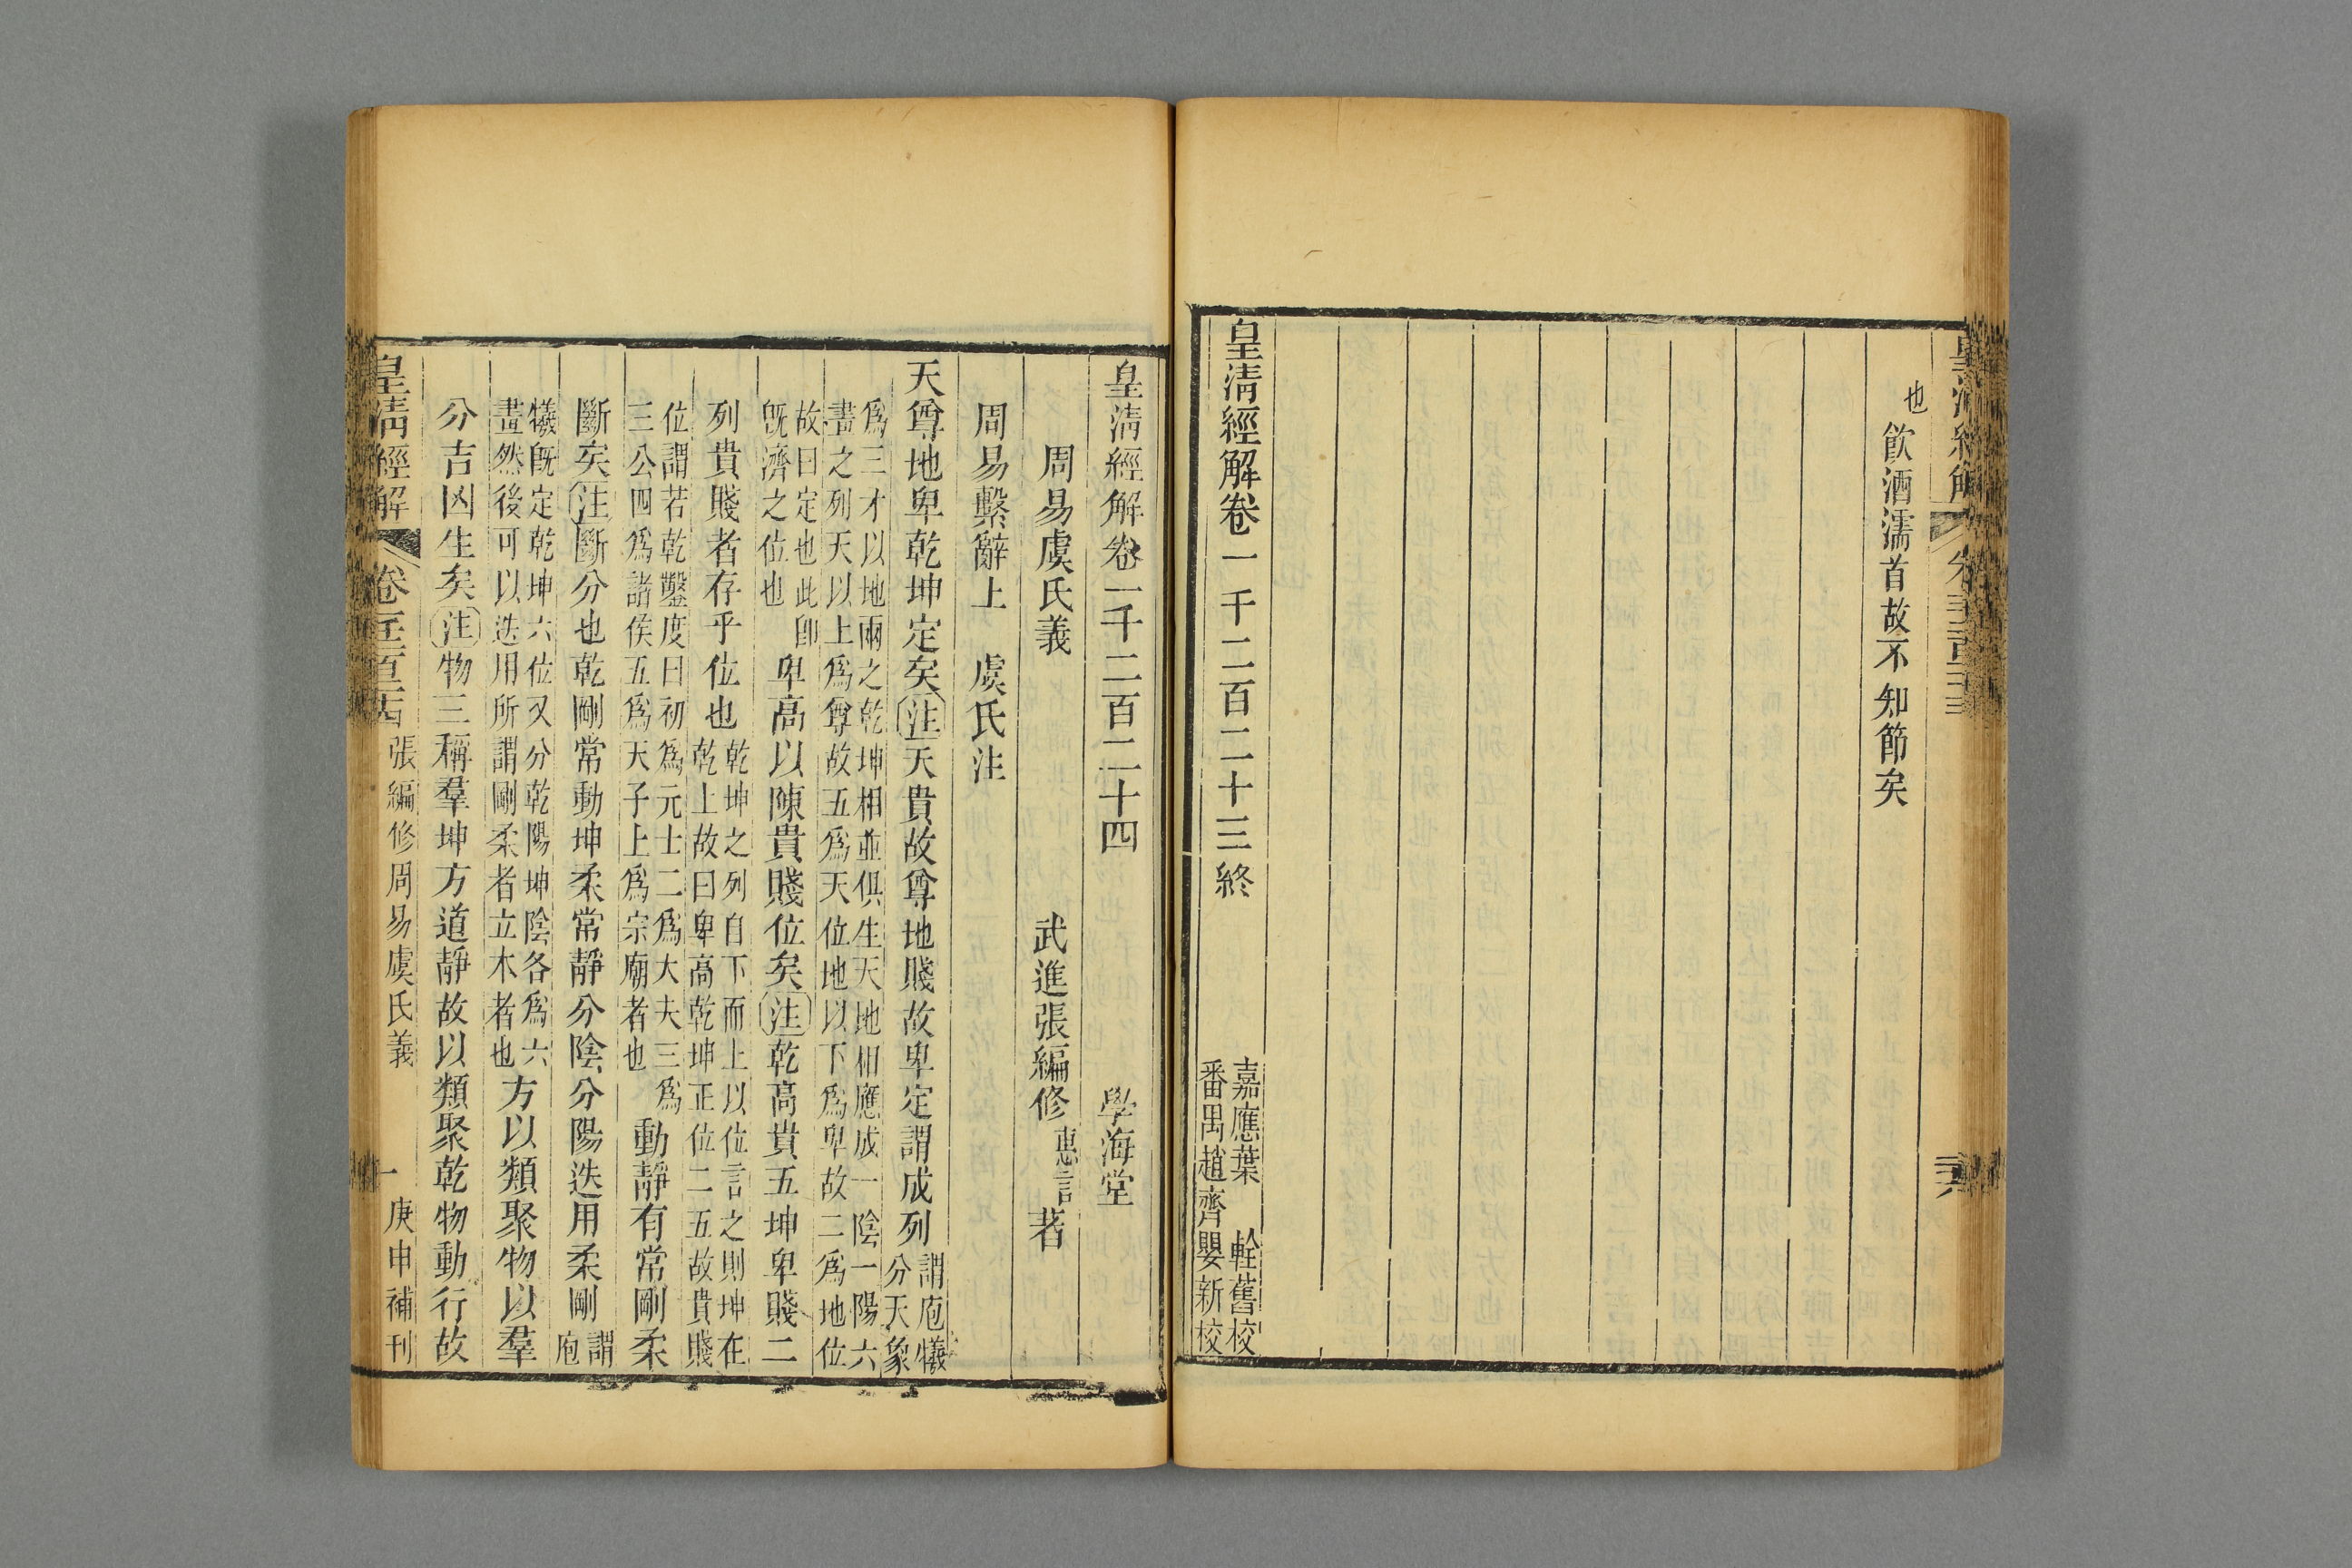 也飲酒濡首故不知節矣
皇清經解卷一千二百二十三終
嘉應葉 輇舊校
番禺趙齊嬰新校
皇清經解卷一千二百二十四 學海堂
周易虞氏義 武進張編修惠言著
周易繫辭上 虞氏注
天尊地卑乾坤定矣注天貴故尊地賤故卑定謂成列謂庖犧分天象
爲三才以地兩之乾坤相並俱生天地相應成一陰一陽六
畫之列天以上爲尊故五爲天位地以下爲卑故二爲地位
故曰定也此卽既濟之位也卑高以陳貴賤位矣注乾高貴五坤卑賤二
列貴賤者存乎位也乾坤之列自下而上以位言之則坤在乾上故曰卑高乾坤正位二五故貴賤
位謂若乾鑿度曰初爲元士二爲大夫三爲三公四爲諸侯五爲天子上爲宗廟者也動靜有常剛柔
斷矣注斷分也乾剛常動坤柔常靜分陰分陽迭用柔剛謂庖
犧既定乾坤六位又分乾陽坤陰各爲六畫然後可以迭用所謂剛柔者立木者也方以類聚物以羣
分吉凶生矣注物三稱羣坤方道靜故以類聚乾物動行故
皇清經解 卷千二百二十四 張編修周易虞氏義 一 庚申補刊